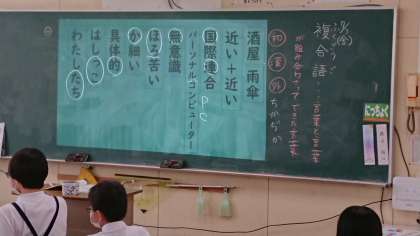 複合語……言葉と言葉
が組み合わさってできた言葉
和 漢 外 ちかぢか
酒屋 雨傘
近い+近い
国際連合
パーソナルコンピューター
PC
無意識
ほろ苦い
か細い
具体的
はしっこ
わたしたち
にっちょく